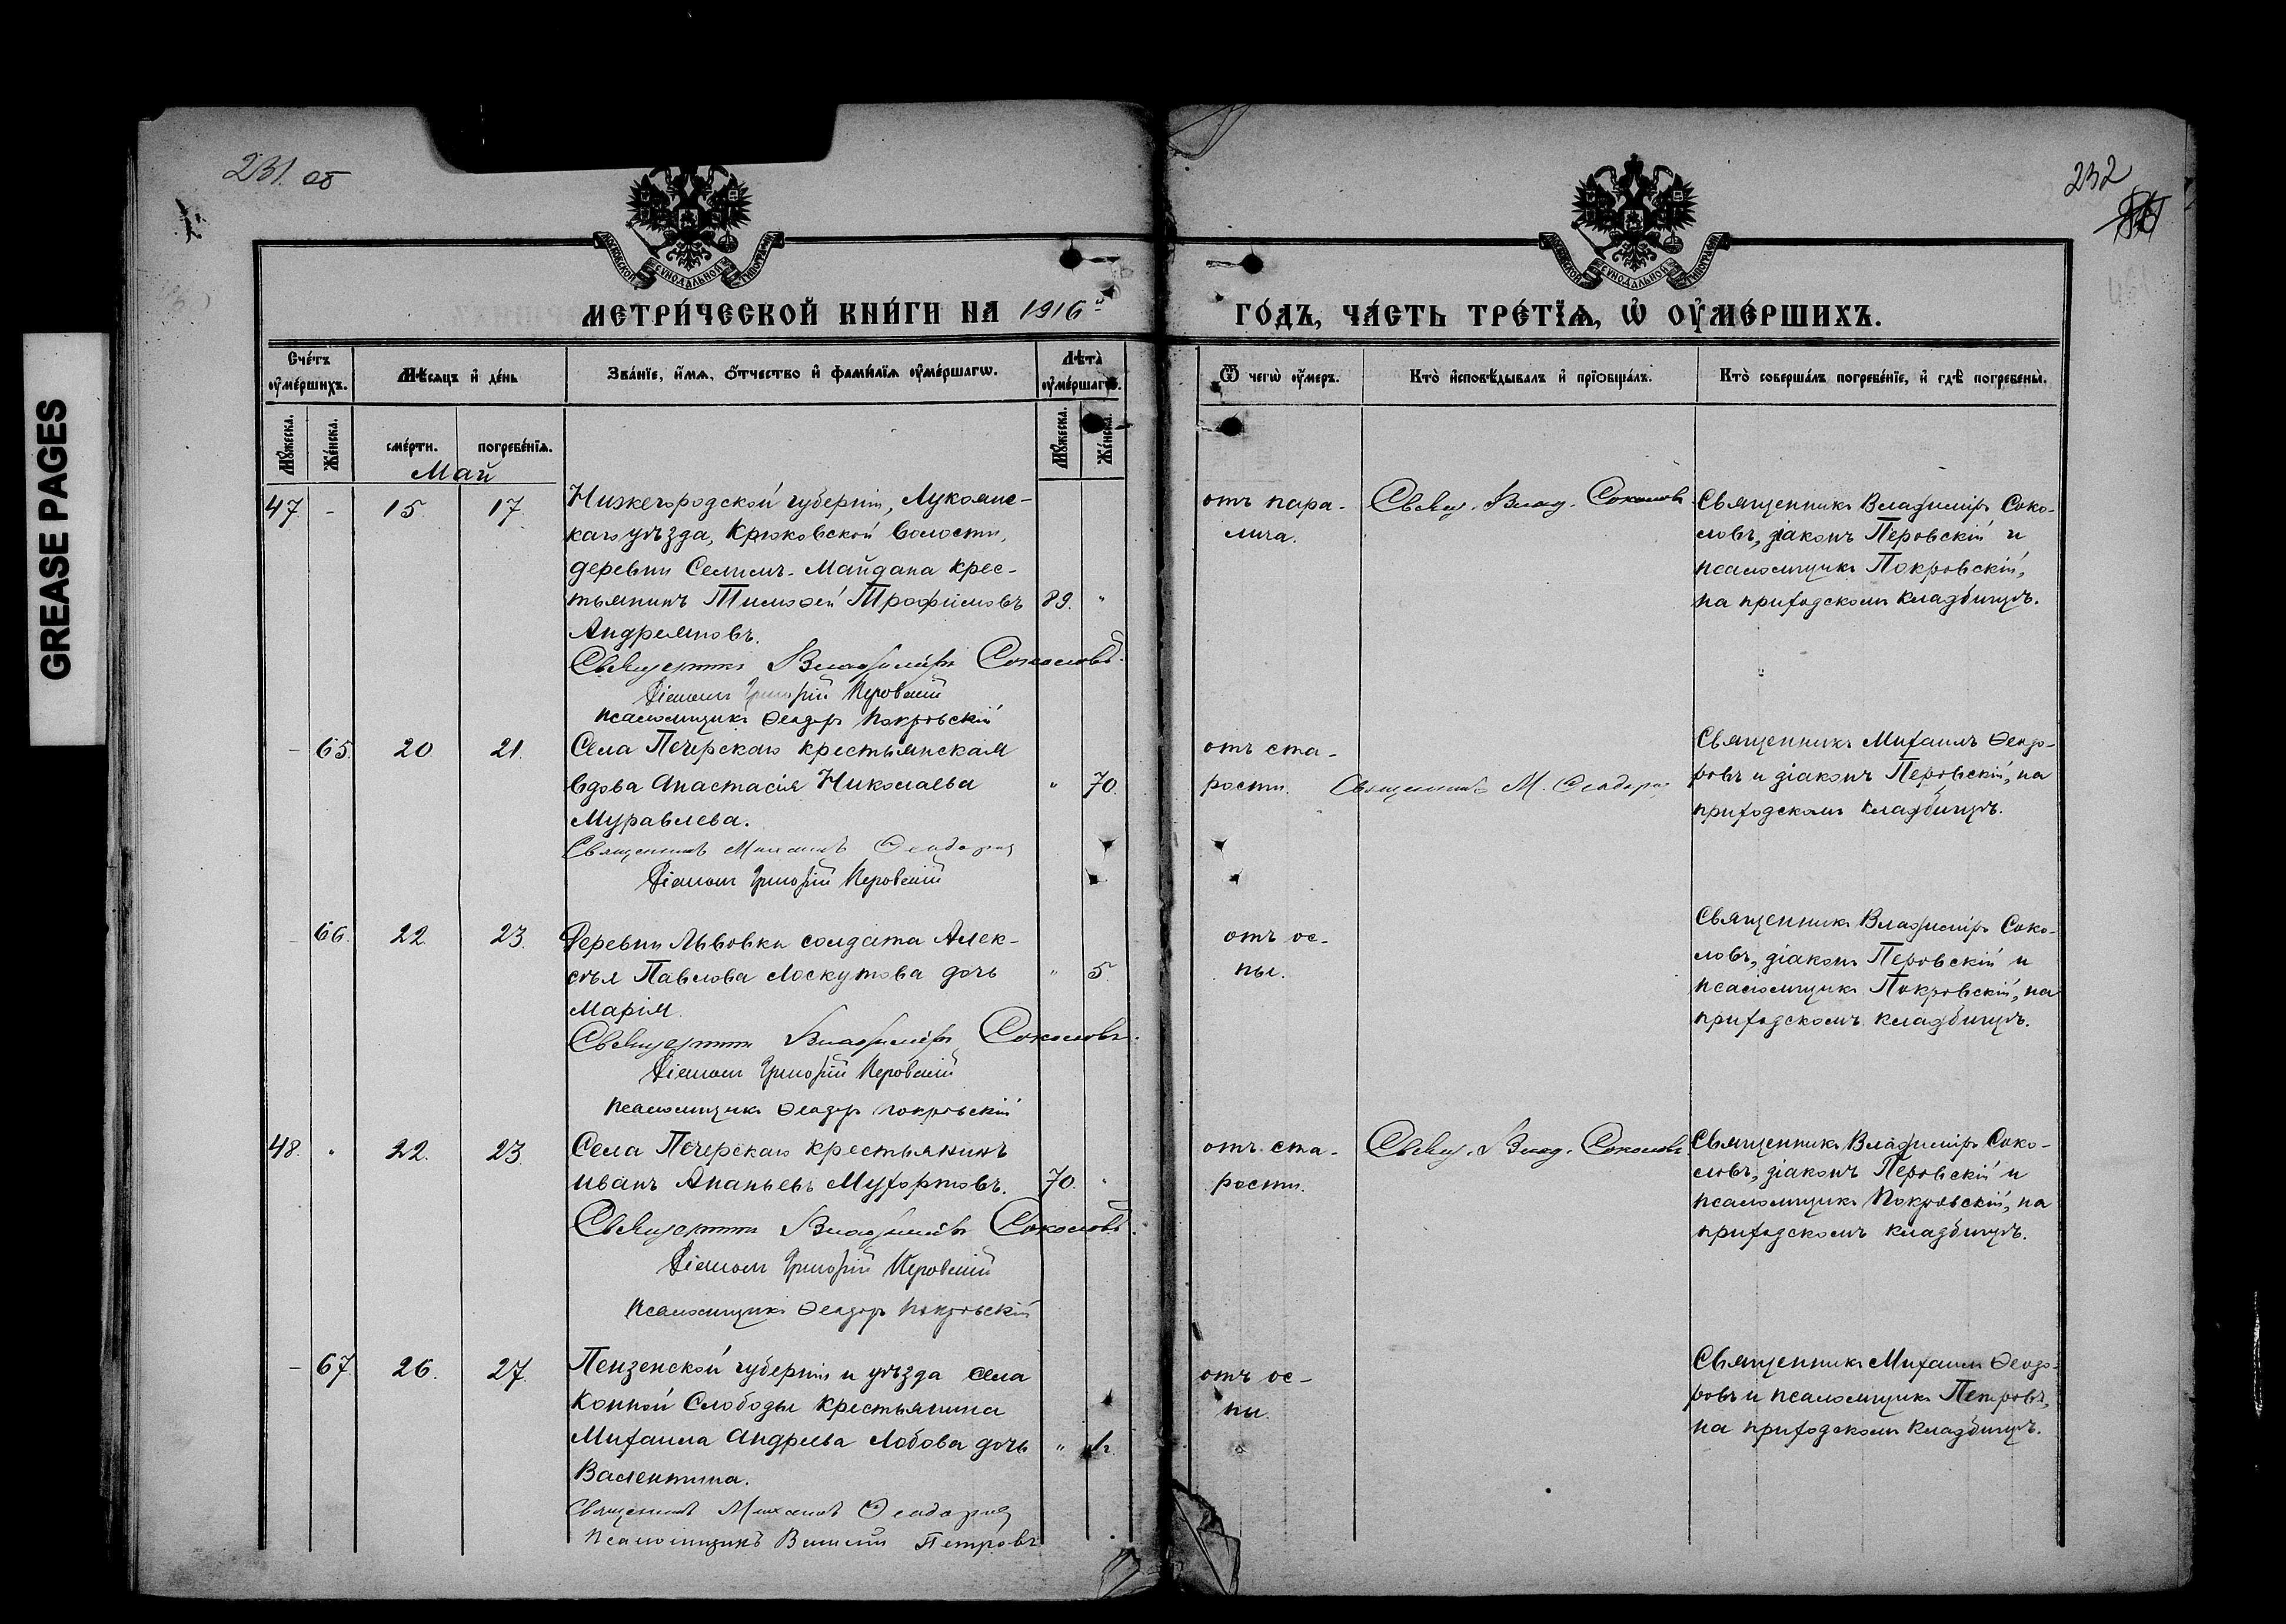 GREASE PAGES
231 об
232
МОСКОВСКОЙ СУНОДАЛЬНОЙ ТИПОГРАФІИ
МОСКОВСКОЙ СУНОДАЛЬНОЙ ТИПОГРАФІИ
МЕТРИ́ЧЕСКОЙ КНИ́ГИ НА 1916й
ГО́ДЪ, ЧА́СТЬ ТРЕ́ТЇѦ, Ѡ҆ ОУ҆МЕ́РШИХЪ.
Сче́тъ оу҆ме́ршихъ.
Мѣ́сѧцъ и҆ де́нь
Зва́нїе, и҆́мѧ, ѻ҆́тчество и҆ фами́лїѧ оу҆ме́ршагѡ.
Лѣ́та оу҆ме́ршагѡ.
Ѿ чегѡ̀ оу҆́меръ.
Кто̀ и҆сповѣ́дывалъ и҆ прїѻбща́лъ.
Кто̀ соверша́лъ погребе́нїе, и҆ гдѣ̀ погребены̀.
Мꙋ́жеска.
Же́нска.
сме́рти.
погребе́нїѧ.
Мꙋ́жеска.
Же́нска.
Май
47. - 15. 17.
Нижегородской губерніи, Лукоянс-
каго уѣзда, Крюковской волости,
деревни Селимъ-Майдана крес-
тьянинъ Тимоѳей Трофимовъ 89. "
Андреяновъ.
Священникъ Владиміръ Соколовъ.
Діаконъ Григорій Перовскій
Псаломщикъ Ѳеодоръ Покровскій
отъ пара-
лича.
Свящ. Влад. Соколовъ
Священникъ Владиміръ Соко-
ловъ, діаконъ Перовскій и
псаломщикъ Покровскій,
на приходскомъ кладбищѣ.
- 65. 20 21.
Села Печерскаго крестьянская
вдова Анастасія Николаева " 70.
Муравлева.
Священникъ Михаилъ Ѳеодоровъ
Діаконъ Григорій Перовскій
отъ ста-
рости.
Священникъ М. Ѳеодоровъ
Священникъ Михаилъ Ѳеодо-
ровъ и діаконъ Перовскій, на
приходскомъ кладбищѣ.
- 66. 22. 23.
Деревни Львовки солдата Алек-
сѣя Павлова Лоскутова дочь " 5.
Марія.
Священникъ Владиміръ Соколовъ.
Діаконъ Григорій Перовскій
Псаломщикъ Ѳеодоръ Покровскій
отъ ос-
пы.
Священникъ Владиміръ Соко-
ловъ, діаконъ Перовскій и
псаломщикъ Покровскій, на
приходскомъ кладбищѣ.
48. " 22. 23
Села Печерскаго крестьянинъ
Иванъ Ананьевъ Мухортовъ. 70. "
Священникъ Владиміръ Соколовъ.
Діаконъ Григорій Перовскій
Псаломщикъ Ѳеодоръ Покровскій
отъ ста-
рости.
Свящ. Влад. Соколовъ
Священникъ Владиміръ Соко-
ловъ, діаконъ Перовскій и
псаломщикъ Покровскій, на
приходскомъ кладбищѣ.
- 67. 26. 27.
Пензенской губерніи и уѣзда села
Конной Слободы крестьянина
Михаила Андреева Лобова дочь "
Валентина.
Священникъ Михаилъ Ѳеодоровъ
Псаломщикъ Василій Петровъ
отъ ос-
пы.
Священникъ Михаилъ Ѳеодо-
ровъ и псаломщикъ Петровъ,
на приходскомъ кладбищѣ.